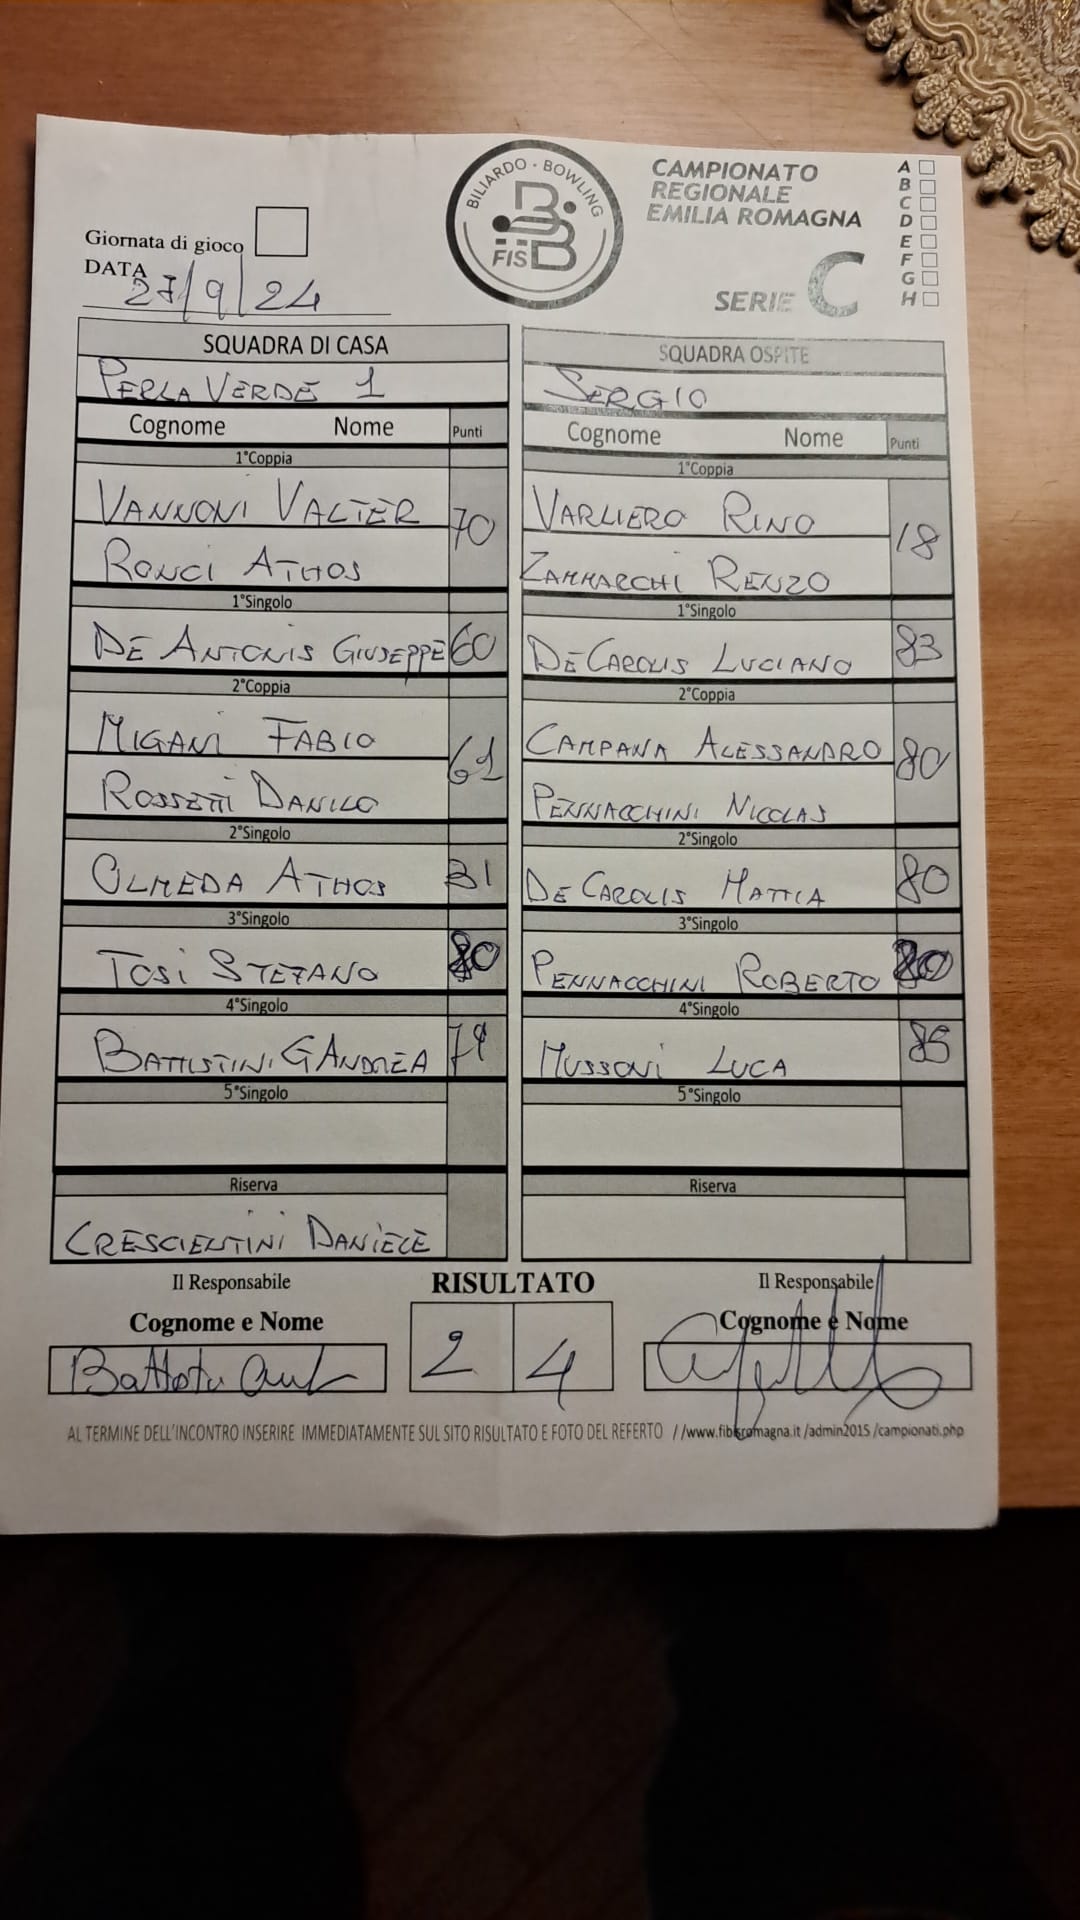 BILIARDO · BOWLING
FISBB
CAMPIONATO
REGIONALE
EMILIA ROMAGNA
SERIE C
A
B
C
D
E
F
G
H
Giornata di gioco
DATA 27/9/24
SQUADRA DI CASA
PERLA VERDE 1
Cognome Nome Punti
1°Coppia
VANNONI VALTER
RONCI ATHOS
70
1°Singolo
DE ANTONIS GIUSEPPE 60
2°Coppia
MIGANI FABIO
ROSSETTI DANILO
61
2°Singolo
OLMEDA ATHOS 31
3°Singolo
TOSI STEFANO
4°Singolo
BATTISTINI GANDREA
5°Singolo
Riserva
CRESCIENTINI DANIELE
SQUADRA OSPITE
SERGIO
Cognome Nome Punti
1°Coppia
VARLIERO RINO
ZAMMARCHI RENZO
18
1°Singolo
DE CAROLIS LUCIANO 83
2°Coppia
CAMPANA ALESSANDRO
PENNACCHINI NICOLAS
80
2°Singolo
DE CAROLIS MATTIA 80
3°Singolo
PENNACCHINI ROBERTO
4°Singolo
MUSSONI LUCA 85
5°Singolo
Riserva
Il Responsabile
Cognome e Nome
RISULTATO
2 4
Il Responsabile
Cognome e Nome
AL TERMINE DELL'INCONTRO INSERIRE IMMEDIATAMENTE SUL SITO RISULTATO E FOTO DEL REFERTO //www.fibisromagna.it /admin2015 /campionati.php